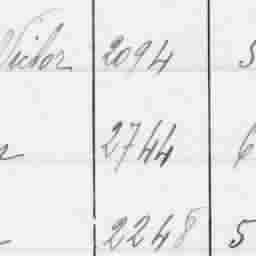 Victor 2094 5
2744 6
2248 5